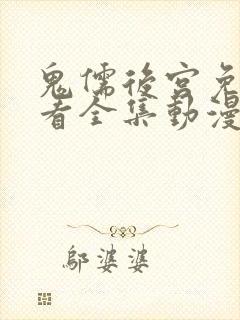 鬼儒後宮免
看全集動漫
鄔婆婆